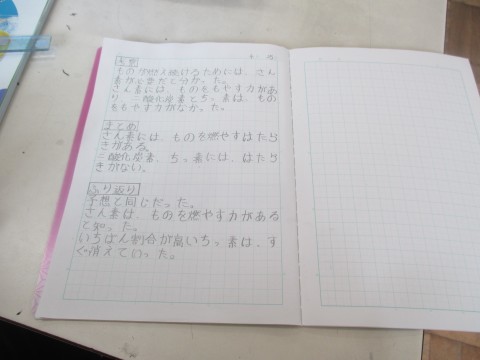 考察
ものが燃え続けるためには、さん
素が必要だと分かった。
さん素には、ものをもやす力があ
り、二酸化炭素とちっ素は、もの
をもやす力がなかった。
まとめ
さん素には、ものを燃やすはたら
きがある。
二酸化炭素、ちっ素には、はたら
きがない。
ふり返り
予想と同じだった。
さん素は、ものを燃やす力がある
と知った。
いちばん割合が高いちっ素は、す
ぐ消えていった。